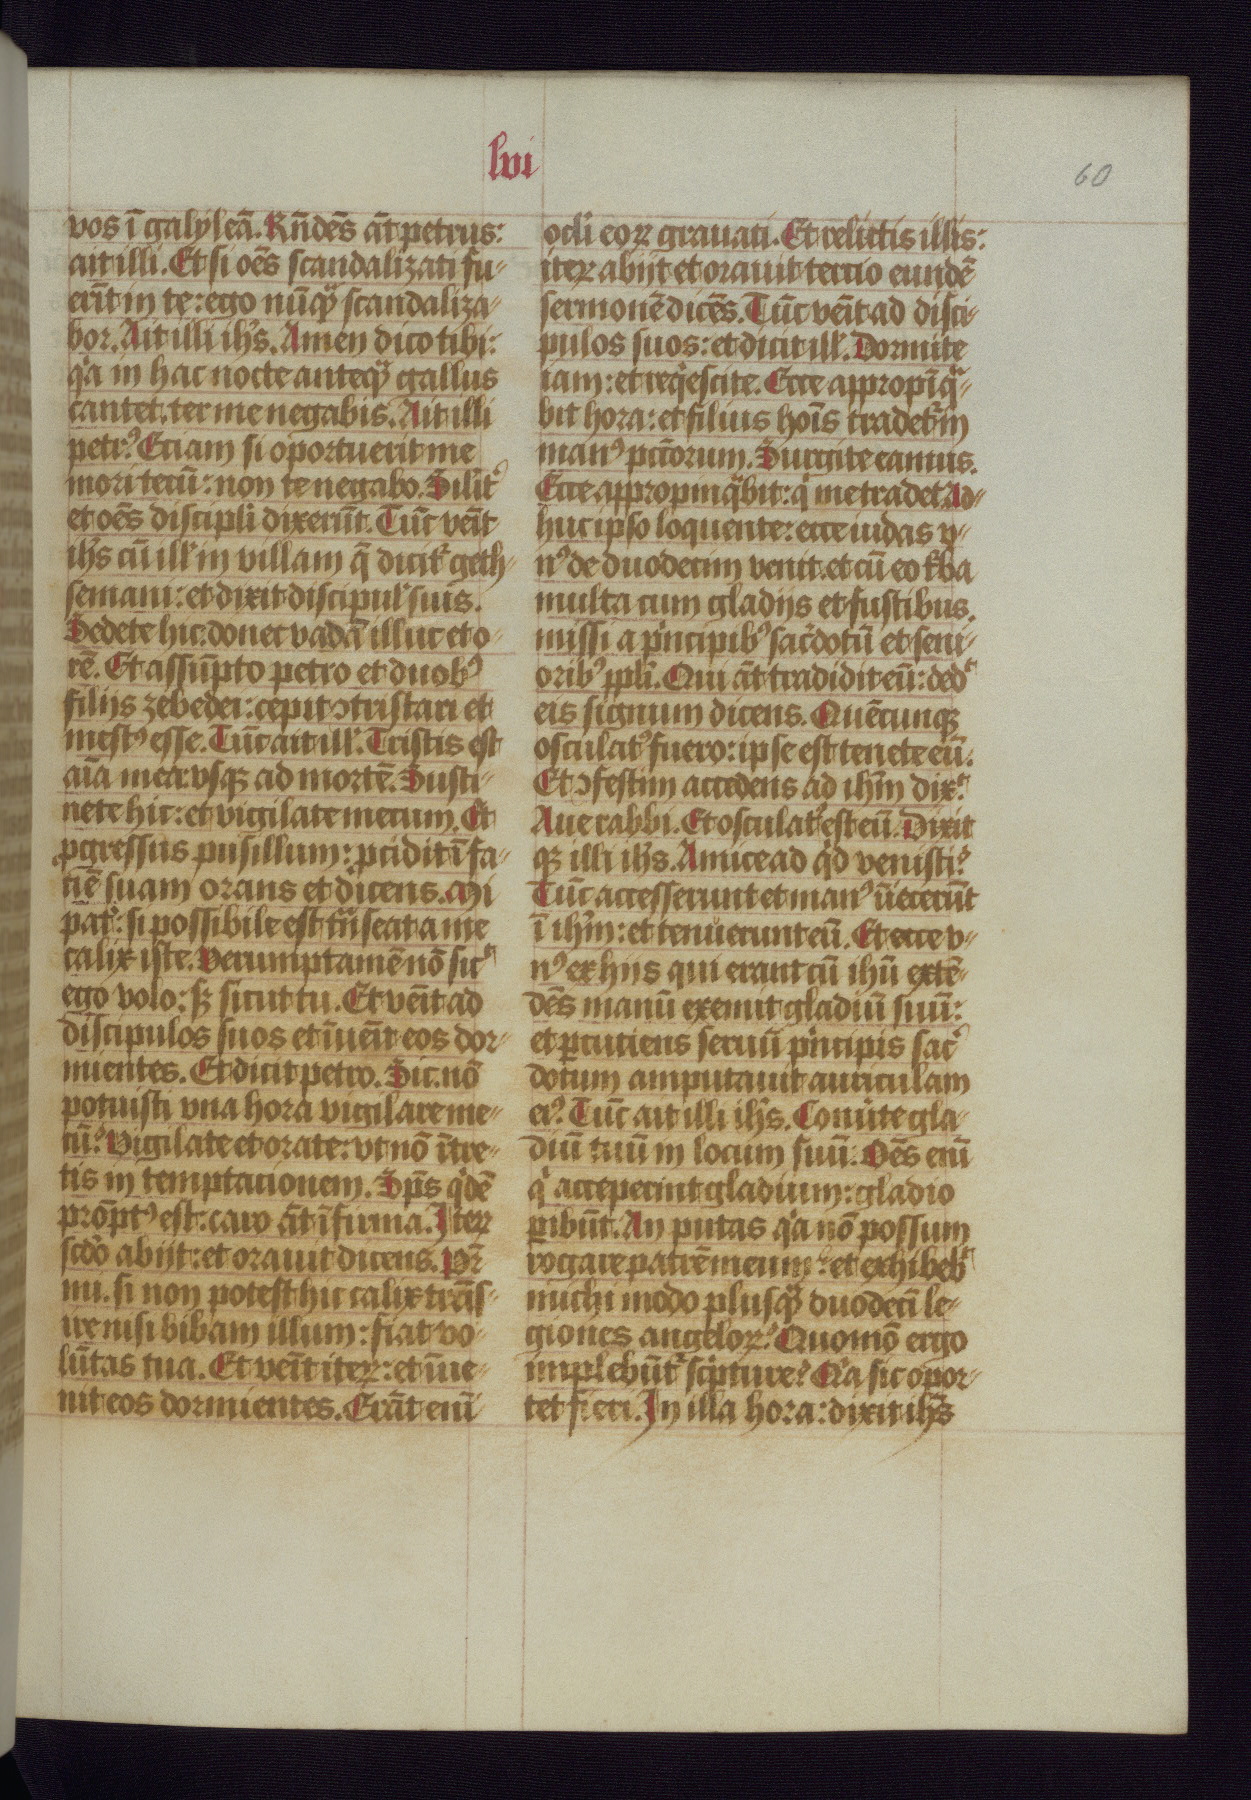 lvi
60
vos ī galyleā. Rn̄dēs āt petrus:
ait illi. Et si oēs scandalizati fu-
erīt in te: ego nūqͣ scandaliza-
bor. Ait illi ihs̄. Amen dico tibi:
qͥa in hac nocte anteqͣ gallus
cantet. ter me negabis. Ait illi
petrꝰ Etiam si oportuerit me
mori tecū: non te negabo. Silitͬ
et oēs discipli dixerūt. Tūc venīt
ihs̄ cū ill' in villam q̄ dicitͬ geth-
semani: et dixit discipul' suis.
Sedete hic. donec vadā illuc et o-
rē. Et assūpto petro et duobꝰ
filijs zebedei: cepit ꝯtristari et
mestꝰ esse. Tūc ait ill'. Tristis est
aīa mea: vsqꝫ ad mortē. Susti-
nete hic: et vigilate mecum. Et
ꝓgressus pusillum: ꝓcidit ī fa-
ciē suam orans et dicens. Mi
patͬ: si possibile est trāseat a me
calix iste. Verumptamē nō sicͭ
ego volo: sꝫ sicut tu. Et venīt ad
discipulos suos et īuenīt eos dor-
mientes. Et dicit petro. Sic nō
potuisti vna hora vigilare me-
cū? Vigilate et orate: vt nō ītre-
tis in temptacionem. Spūs qͥdē
promptꝰ est: caro āt īfirma. Iteꝝ
scdō abijt: et orauit dicens. Pr̄
mi. si non potest hic calix trās-
ire nisi bibam illum: fiat vo-
lūtas tua. Et venīt iteꝝ: et īue-
nit eos dormientes. Erāt enī
ocli eoꝝ grauati. Et relictis illis:
iteꝝ abijt et orauit tercio eundē
sermonē dicēs. Tūc venīt ad disci-
pulos suos: et dicit ill'. Dormite
iam: et reqͥescite. Ecce appropīqͣ-
bit hora: et filius hoīs tradetͬ in
manꝰ pctōrum. Surgite eamus.
Ecce appropinqͣbit: qͥ me tradet. Ad-
huc ipso loquente: ecce iudas v-
nꝰ de duodecim venit. et cū eo tͬba
multa cum gladijs et fustibus.
missi a pͥncipibꝰ sac̄dotū et seni-
oribꝰ ppli. Qui āt tradidit eū: dedͭ
eis signum dicens. Quēcunqꝫ
osculatꝰ fuero: ipse est tenete eū.
Et ꝯfestim accedens ad ihm̄ dixͭ.
Aue rabbi. Et osculatꝰ est eū. Dixit
qꝫ illi ihs̄. Amice ad qͥd venisti?
Tūc accesserunt et manꝰ īiecerūt
ī ihm̄: et tenuerunt eū. Et ecce v-
nꝰ ex hijs qui erant cū ihū extē-
dēs manū exemit gladiū suū:
et ꝑcutiens seruū pͥncipis sacͬ
dotum amputauit auriculam
eiꝰ. Tūc ait illi ihs̄. Conūte gla-
diū tuū in locum suū. Oēs enī
qͥ acceperint gladium: gladio
ꝑibūt. An putas qͥa nō possum
rogare patrē meum: et exhibebͭ
michi modo plusqͣ duodecī le-
giones angeloꝝ? Quomō ergo
implebūtͬ scͥpture? Qͥa sic opor-
tet fieri. In illa hora: dixit ihs̄